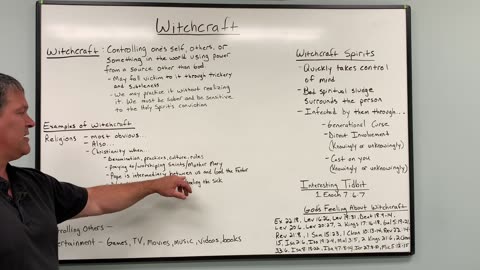 Witchcraft
Witchcraft: Controlling one's self, others, or
something in the world using power
from a source other than God
- May fall victim to it through trickery
and subtleness
- We may practice it without realizing
it. We must be sober and be sensitive
to the Holy Spirit's conviction.
Examples of Witchcraft
Religions - most obvious...
- Also...
- Christianity when...
- Denomination, practices, culture, rules
- Praying to/worshiping Saints/Mother Mary
- Pope is intermediary between us and God the Father
the Sick
Controlling Others -
Entertainment - Games, TV, Movies, music, videos, books
Witchcraft Spirits
- Quickly takes control
of mind
- Bad spiritual sludge
surrounds the person
- Infected by them through...
- Generational Curse
- Direct Involvement
(Knowingly or unknowingly)
- Cast on you
(Knowingly or unknowingly)
Interesting Tidbit
1 Enoch 7:6-7
God's Feeling About Witchcraft
Ex 22:18, Lev 19:26, Lev 19:31, Deut 18:9-14,
Lev 20:6, Lev 20:27, 2 Kings 17:16-17, Gal 5:19-21
Rev 21:8, 1 Sam 15:23, 1 Chron 10:13-14